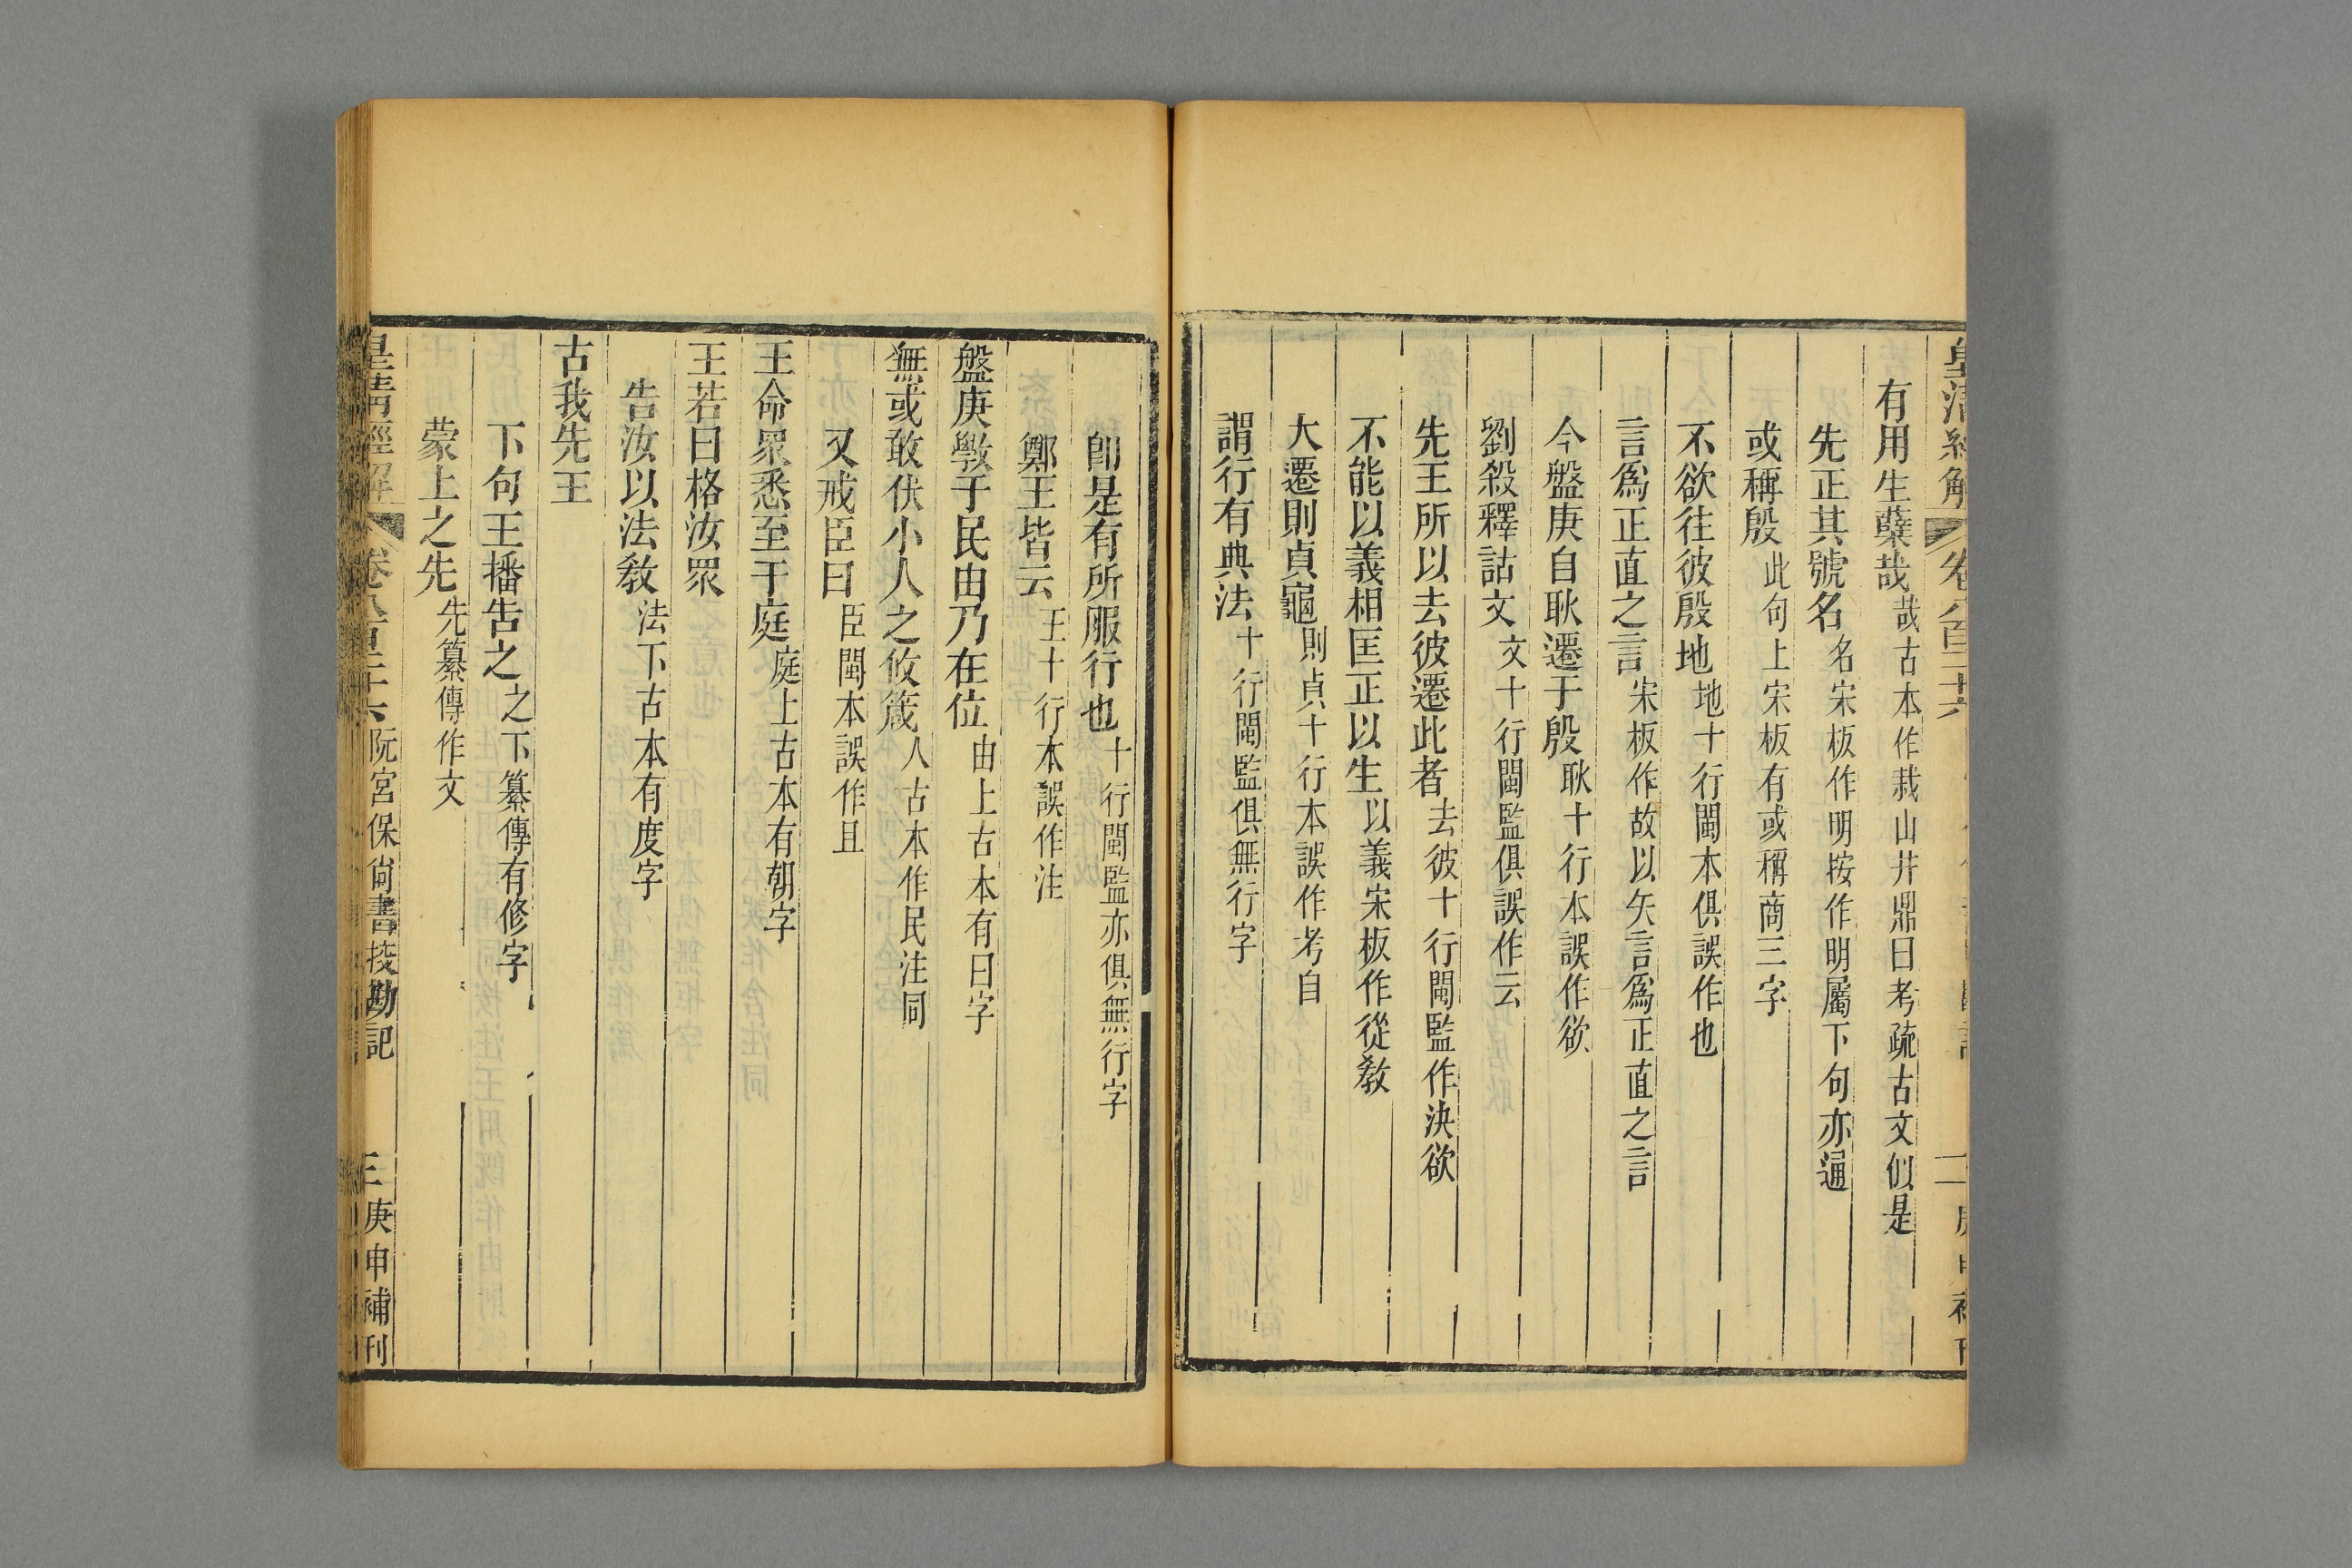 有用生蘖哉哉古本作栽山井鼎曰考疏古文似是
先正其號名名宋板作明按作明屬下句亦通
或稱殷此句上宋板有或稱商三字
不欲往彼殷地地十行閩本俱誤作也
言爲正直之言宋板作故以矢言爲正直之言
今盤庚自耿遷于殷耿十行本誤作欲
劉殺釋詁文文十行閩監俱誤作云
先王所以去彼遷此者去彼十行閩監作決欲
不能以義相匡正以生以義宋板作從敎
大遷則貞龜則貞十行本誤作考自
謂行有典法十行閩監俱無行字
卽是有所服行也十行閩監亦俱無行字
鄭王皆云王十行本誤作注
盤庚斆于民由乃在位由上古本有曰字
無或敢伏小人之攸箴人古本作民注同
又戒臣曰臣閩本誤作且
王命眾悉至于庭庭上古本有朝字
王若曰格汝眾
告汝以法敎法下古本有度字
古我先王
下句王播告之之下纂傳有修字
蒙上之先先纂傳作文
皇淸經解 卷八百二十六 阮宮保尙書挍勘記 三 庚申補刊